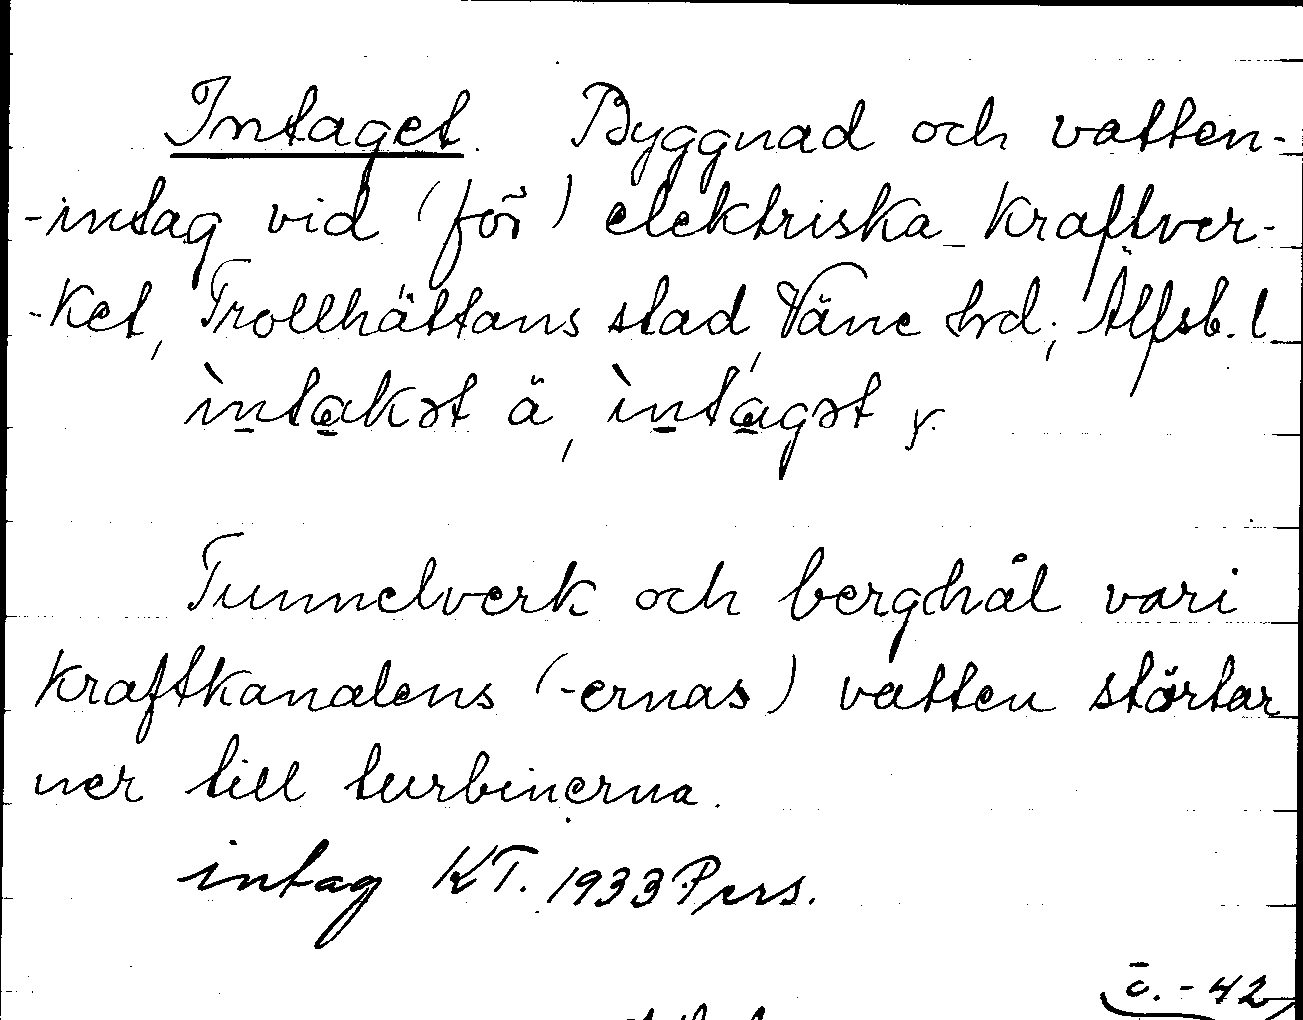 Intaget. Byggnad och vatten-
-intag vid (för) elektriska kraftver-
-ket, Trollhättans stad, Väne hrd; Älfsb. l.
ìntakət ä, ìntagət y.
Tunnelverk och berghål vari
kraftkanalens (-ernas) vatten störtar
ner till turbinerna.
intag KT. 1933 Pers.
ō. - 42